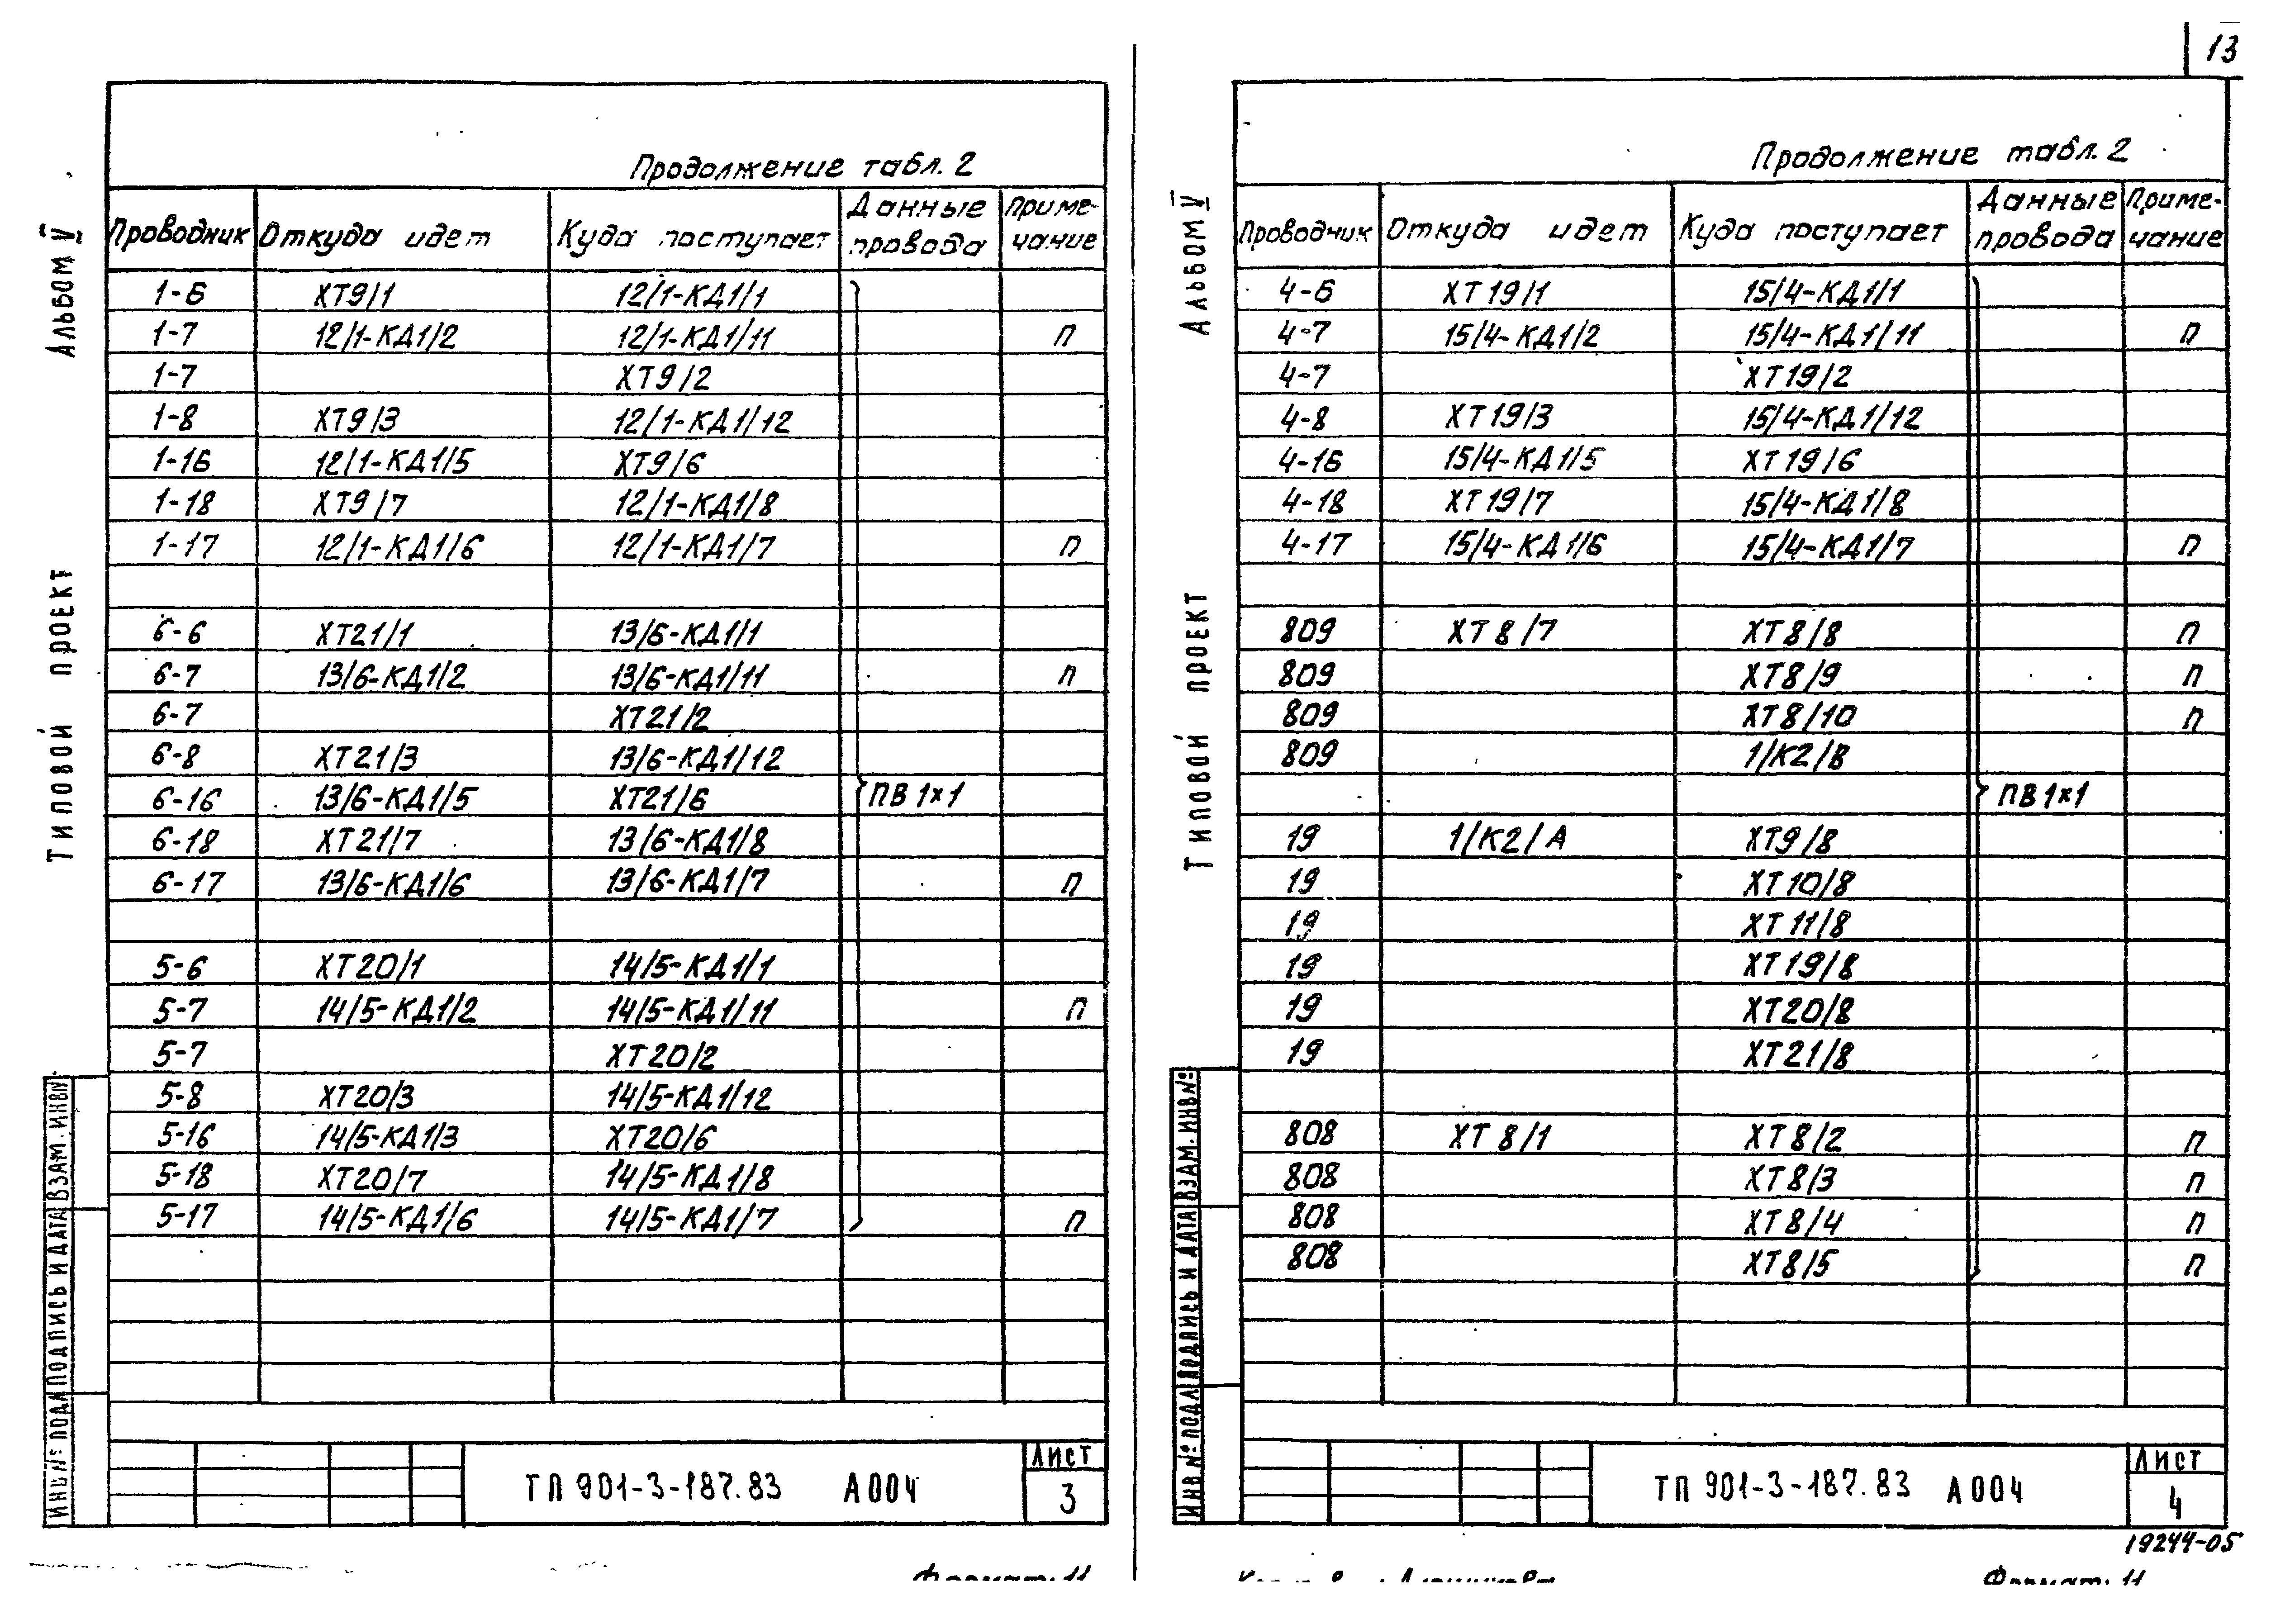 13
Продолжение табл. 2
Проводник Откуда идет Куда поступает Данные провода Примечание
1-6 ХТ9/1 12/1-КД1/1
1-7 12/1-КД1/2 12/1-КД1/11 П
1-7 ХТ9/2
1-8 ХТ9/3 12/1-КД1/12
1-16 12/1-КД1/5 ХТ9/6
1-18 ХТ9/7 12/1-КД1/8
1-17 12/1-КД1/6 12/1-КД1/7 П
6-6 ХТ21/1 13/6-КД1/1
6-7 13/6-КД1/2 13/6-КД1/11 П
6-7 ХТ21/2
6-8 ХТ21/3 13/6-КД1/12
6-16 13/6-КД1/5 ХТ21/6 ПВ 1×1
6-18 ХТ21/7 13/6-КД1/8
6-17 13/6-КД1/6 13/6-КД1/7 П
5-6 ХТ20/1 14/5-КД1/1
5-7 14/5-КД1/2 14/5-КД1/11 П
5-7 ХТ20/2
5-8 ХТ20/3 14/5-КД1/12
5-16 14/5-КД1/3 ХТ20/6
5-18 ХТ20/7 14/5-КД1/8
5-17 14/5-КД1/6 14/5-КД1/7 П
ТП 901-3-187.83 А004
Лист
3
Формат: 11
Альбом V
Типовой проект
Взам. инв №
Подпись и дата
Инв № подл
Продолжение табл. 2
Проводник Откуда идет Куда поступает Данные провода Примечание
4-6 ХТ19/1 15/4-КД1/1
4-7 15/4-КД1/2 15/4-КД1/11 П
4-7 ХТ19/2
4-8 ХТ19/3 15/4-КД1/12
4-16 15/4-КД1/5 ХТ19/6
4-18 ХТ19/7 15/4-КД1/8
4-17 15/4-КД1/6 15/4-КД1/7 П
809 ХТ8/7 ХТ8/8 П
809 ХТ8/9 П
809 ХТ8/10 П
809 1/К2/В
ПВ 1×1
19 1/К2/А ХТ9/8
19 ХТ10/8
19 ХТ11/8
19 ХТ19/8
19 ХТ20/8
19 ХТ21/8
808 ХТ8/1 ХТ8/2 П
808 ХТ8/3 П
808 ХТ8/4 П
808 ХТ8/5 П
ТП 901-3-187.83 А004
Лист
4
19244-05
Формат: 11
Альбом V
Типовой проект
Взам. инв №
Подпись и дата
Инв № подл